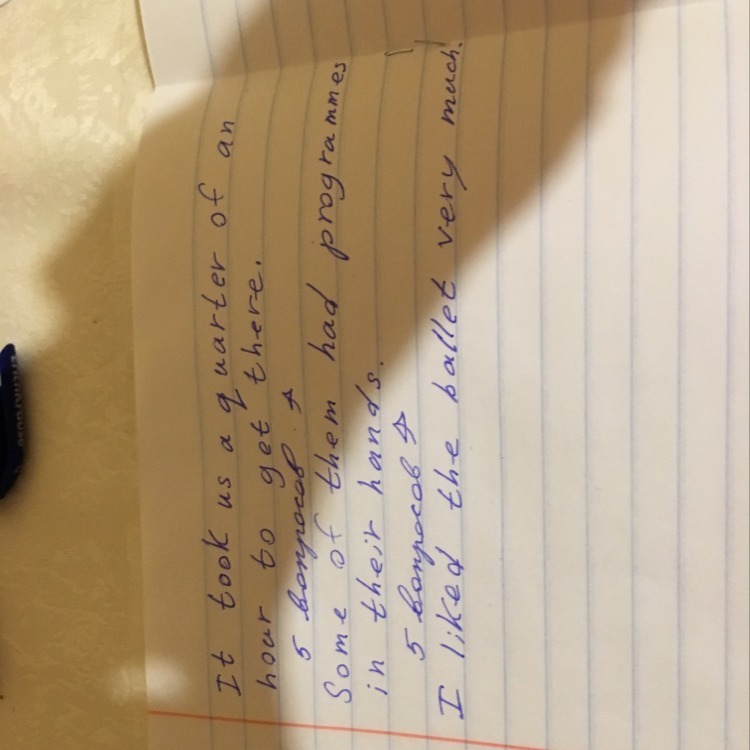 It took us a quarter of an
hour to get there.
5 вопросов →
Some of them had programmes
in their hands.
5 вопросов →
I liked the ballet very much.